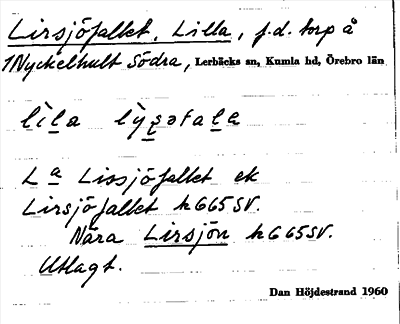 Lirsjöfallet, Lilla, f.d. torp å
1Nyckelhult Södra, Lerbäcks sn, Kumla hd, Örebro län
lìla
La Lissjöfallet ek
Lirsjöfallet k665SV.
Nära Lirsjön k665SV.
Utlagt.
Dan Höjdestrand 1960